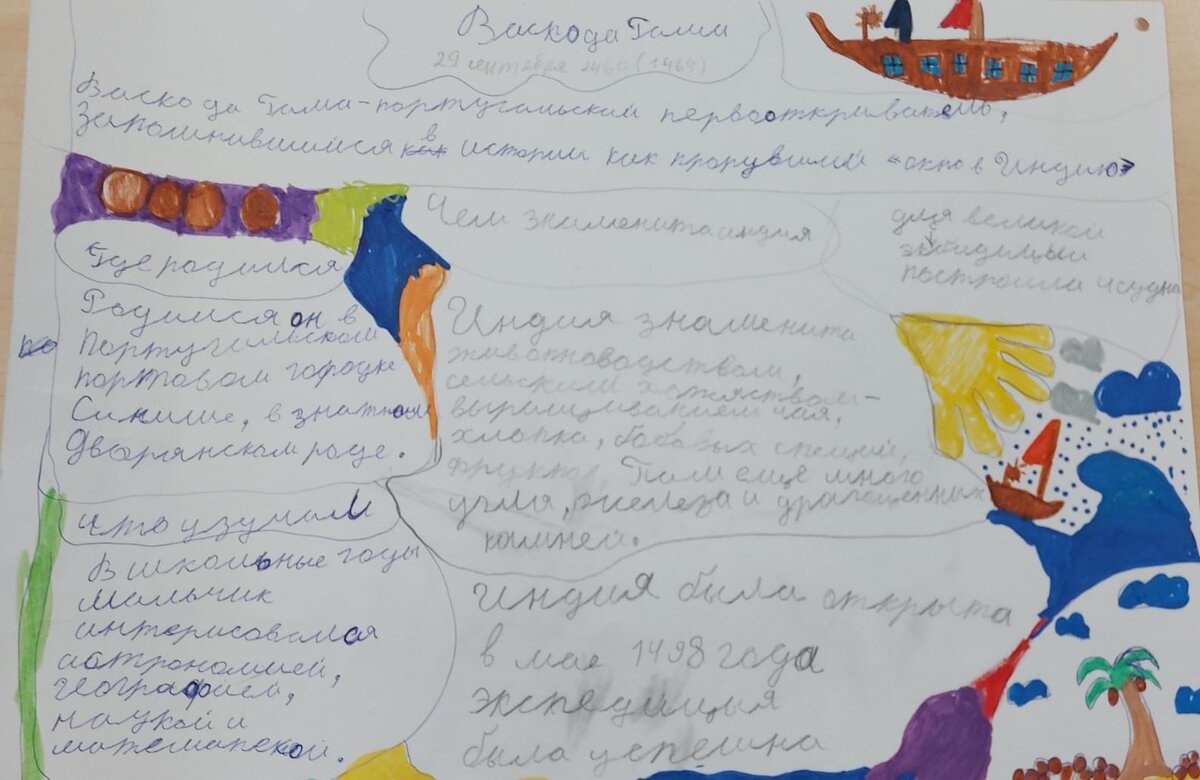 Васко да Гама
29 сентября 1460 (1469)
Васко да Гама - португальский первооткрыватель,
Запомнившийся в истории как прорувший «окно в Индию»
Чем знаменита индия
для великой
построили 4 судна
Где родился
Родился он в
Португальском
портовом городке
Синише, в знатном
дворянском роде.
Индия знаменита
животноводством,
сельским хозяйством -
выращиванием чая,
хлопка, бобовых специй,
фруктов. Там ещё много
угля, железа и драгоценных
камней.
что изучал
В школьные годы
мальчик
интерисовался
астрономией,
географией,
наукой и
Индия была открыта
в мае 1498 года
экспедиция
была успешна